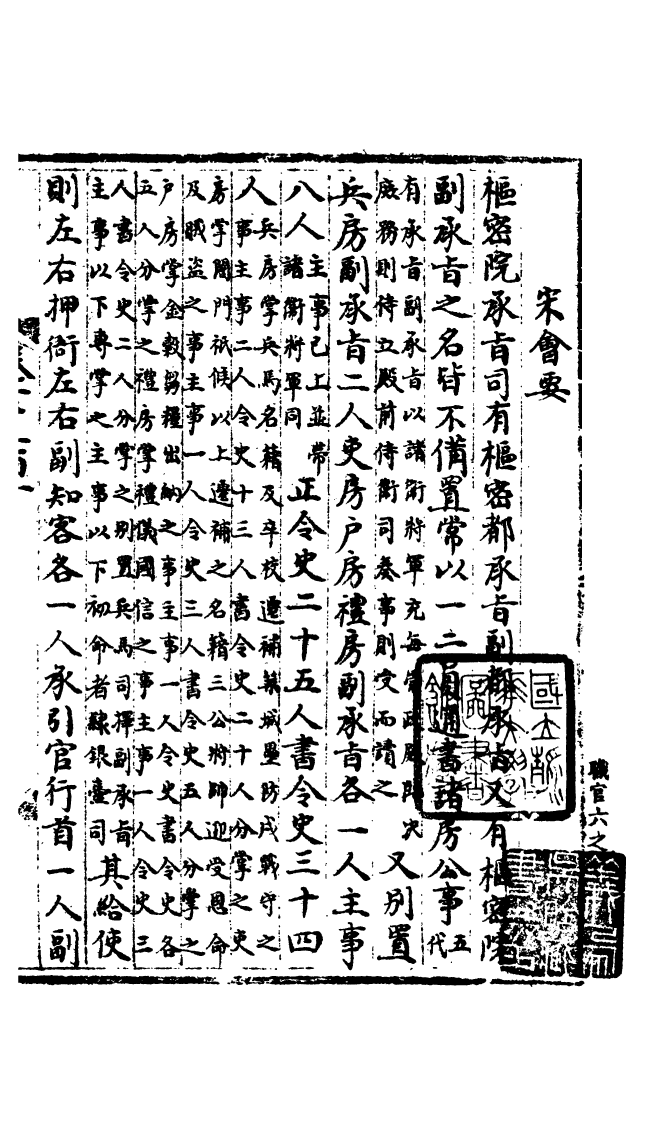 宋會要
樞密院承旨司有樞密都承旨副都承旨又有樞密院
副承旨之名皆不備置常以一二員通書諸房公事五代
有承旨副承旨以諸衛將軍充每
庭務則侍立殿前侍衛司奏事則受而讀之
又別置
兵房副承旨二人吏房户房禮房副承旨各一人主事
八人主事已上並帶諸衛將軍同正令史二十五人書令史三十四
人兵房掌兵馬名籍及卒校遷補築城壘防戍戰守之
事主事二人令史十三人書令史二十人分掌之吏
房掌閤門祇候以上遷補之名籍三公將師迎受恩命
及賊盗之事主事一人令史三人書令史五人分掌之
户房掌金穀芻糧出納之事主事一人令史書令史各
五人分掌之禮房掌禮儀國信之事主事一人令史三
人書令史二人分掌之别置兵馬司揮副承旨
主事以下專掌之主事以下初命者隸銀臺司其給使
則左右押衙左右副知客各一人承引官行首一人副
職官六之